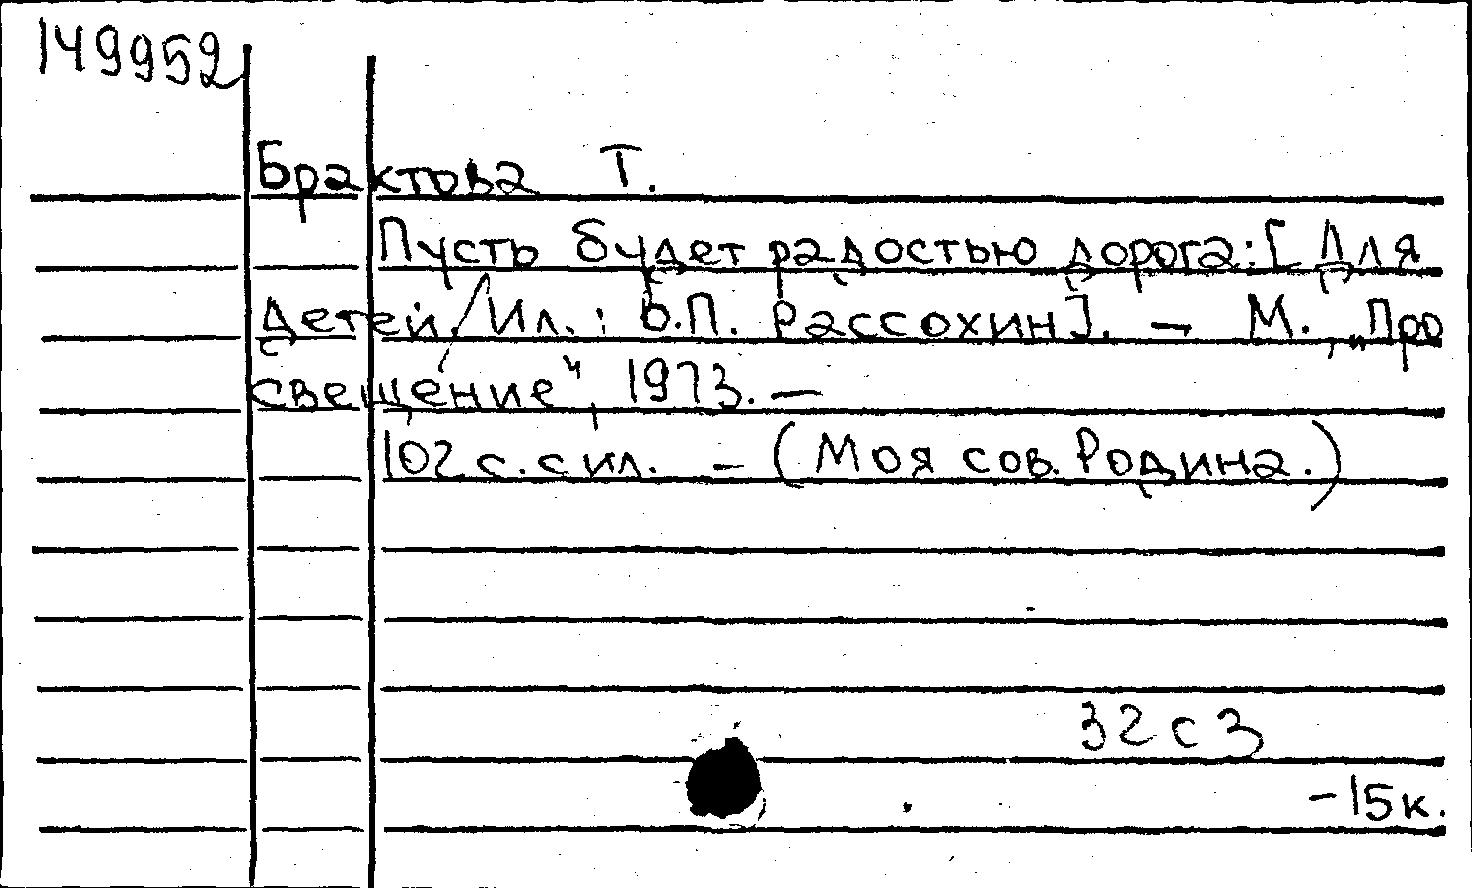 149952
Брактова Т.
Пусть будет радостью дорога: [Для
детей/Ил.: В.П. Рассохин]. – М., „Про
свещение“, 1973. –
102 с. с ил. – (Моя сов. Родина.)
32 с 3
– 15 к.